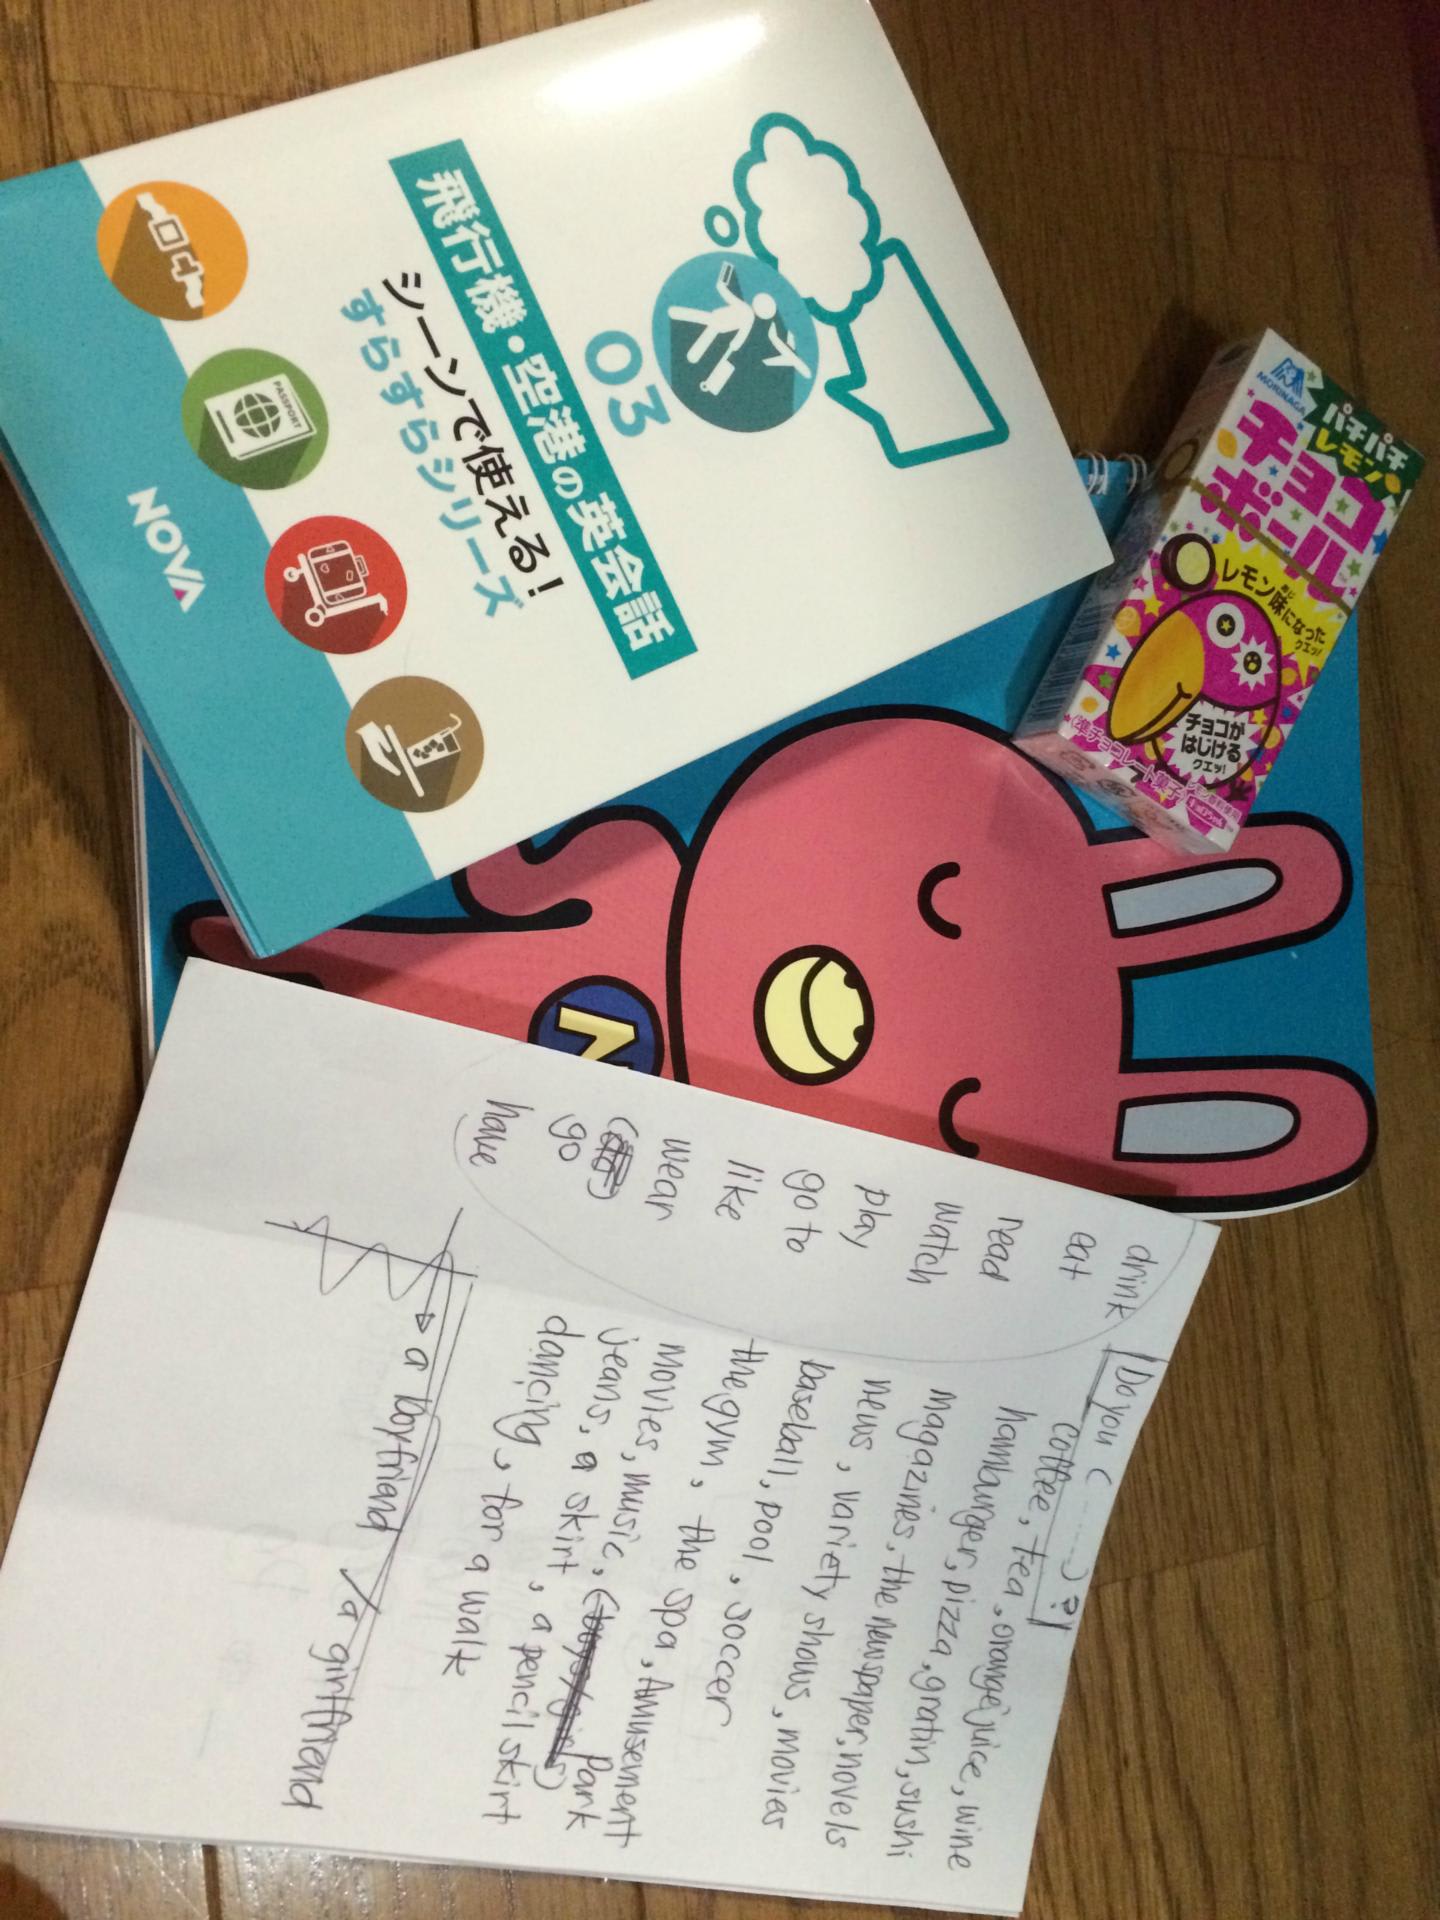 飛行機・空港の英会話
シーンで使える!
すらすらシリーズ
03
PASSPORT
NOVA
MORINAGA
パチパチ
レモン
チョコ
ボール
レモン味になった
クエッ!
チョコが
はじける
クエッ!
準チョコレート菓子
N
Do you ( ...... ) ?
drink coffee, tea, orange juice, wine
eat hamburger, pizza, gratin, sushi
read magazines, the newspaper, novels
watch news, variety shows, movies
play baseball, pool, soccer
go to the gym, the spa, Amusement Park
like movies, music,
wear jeans, a skirt, a pencil skirt
go dancing, for a walk
have a boyfriend / a girlfriend